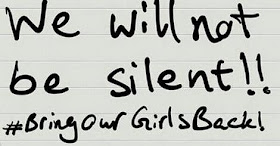 We will not
be silent!!
#BringOurGirlsBack!